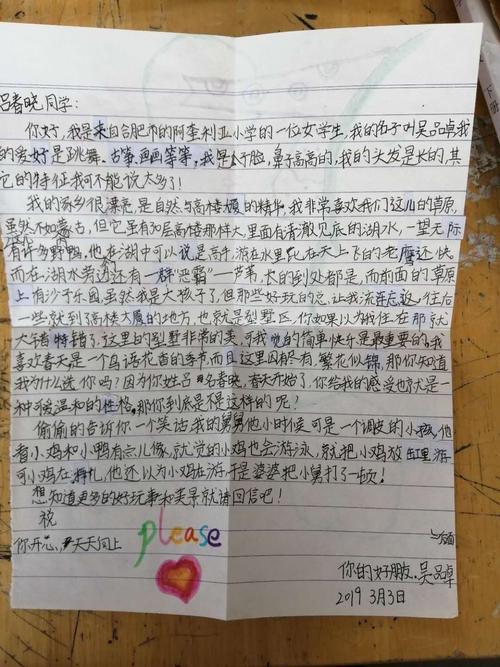 吕春晓同学:
你好,我是来自合肥市的阿奎利亚小学的一位女学生,我的名子叫吴品卓我
的爱好是跳舞、古筝、画画等等,我是个子脸,鼻子高高的,我的头发是长的,其
它的特征我可不能说太多了!
我的家乡很漂亮,是自然与高楼大厦的精华,我非常喜欢我们这儿的草原,
虽然不如蒙古,但它里有30层高楼那样大里面有青澈见底的湖水,一望无际
有许多野鸭,他在湖中可以说是高手,游在水里比在天上飞的老鹰还快,
而在湖水旁边还有一群“恶霸”一芦苇,长的到处都是,而东面的草原
上有沙子乐园虽然我是大孩子了,但那些好玩的它,让我流连忘返,往后
一些就到了高楼大厦的地方,也就是别墅区,你如果以为我住在那就
大子着特错了,这里的别墅非常的美,可我 的简单快乐是最重要的,我
喜欢春天是一个鸟语花香的季节而且这里因 有,繁花似锦,那你知道
我为什么选你吗?因为你姓吕名春晓,春天开始了,你给我的感受也就是一
种可爱温和的性格,那你到底是不是这样的呢!
偷偷的告诉你一个笑话:我的舅舅他小时候可是一个调皮的小孩,他
看小鸡和小鸭有点儿像,就觉的小鸡也会游泳,就把小鸡放缸里游
可小鸡在挣扎,他还以为小鸡在游,于是婆婆把小舅打了一顿!
想知道更多的好玩事和美景就请回信吧!
祝
你开心,天天向上
please
你的好朋友:吴品卓
2019 3月3日